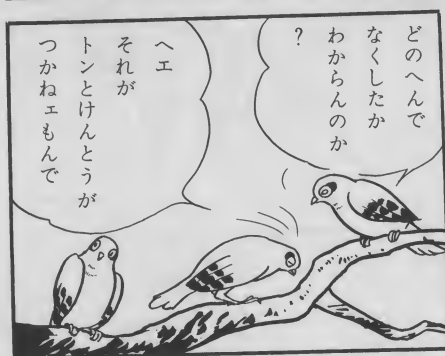 どのへんで
なくしたか
わからんのか
？
ヘエ
それが
トンとけんとうが
つかねエもんで